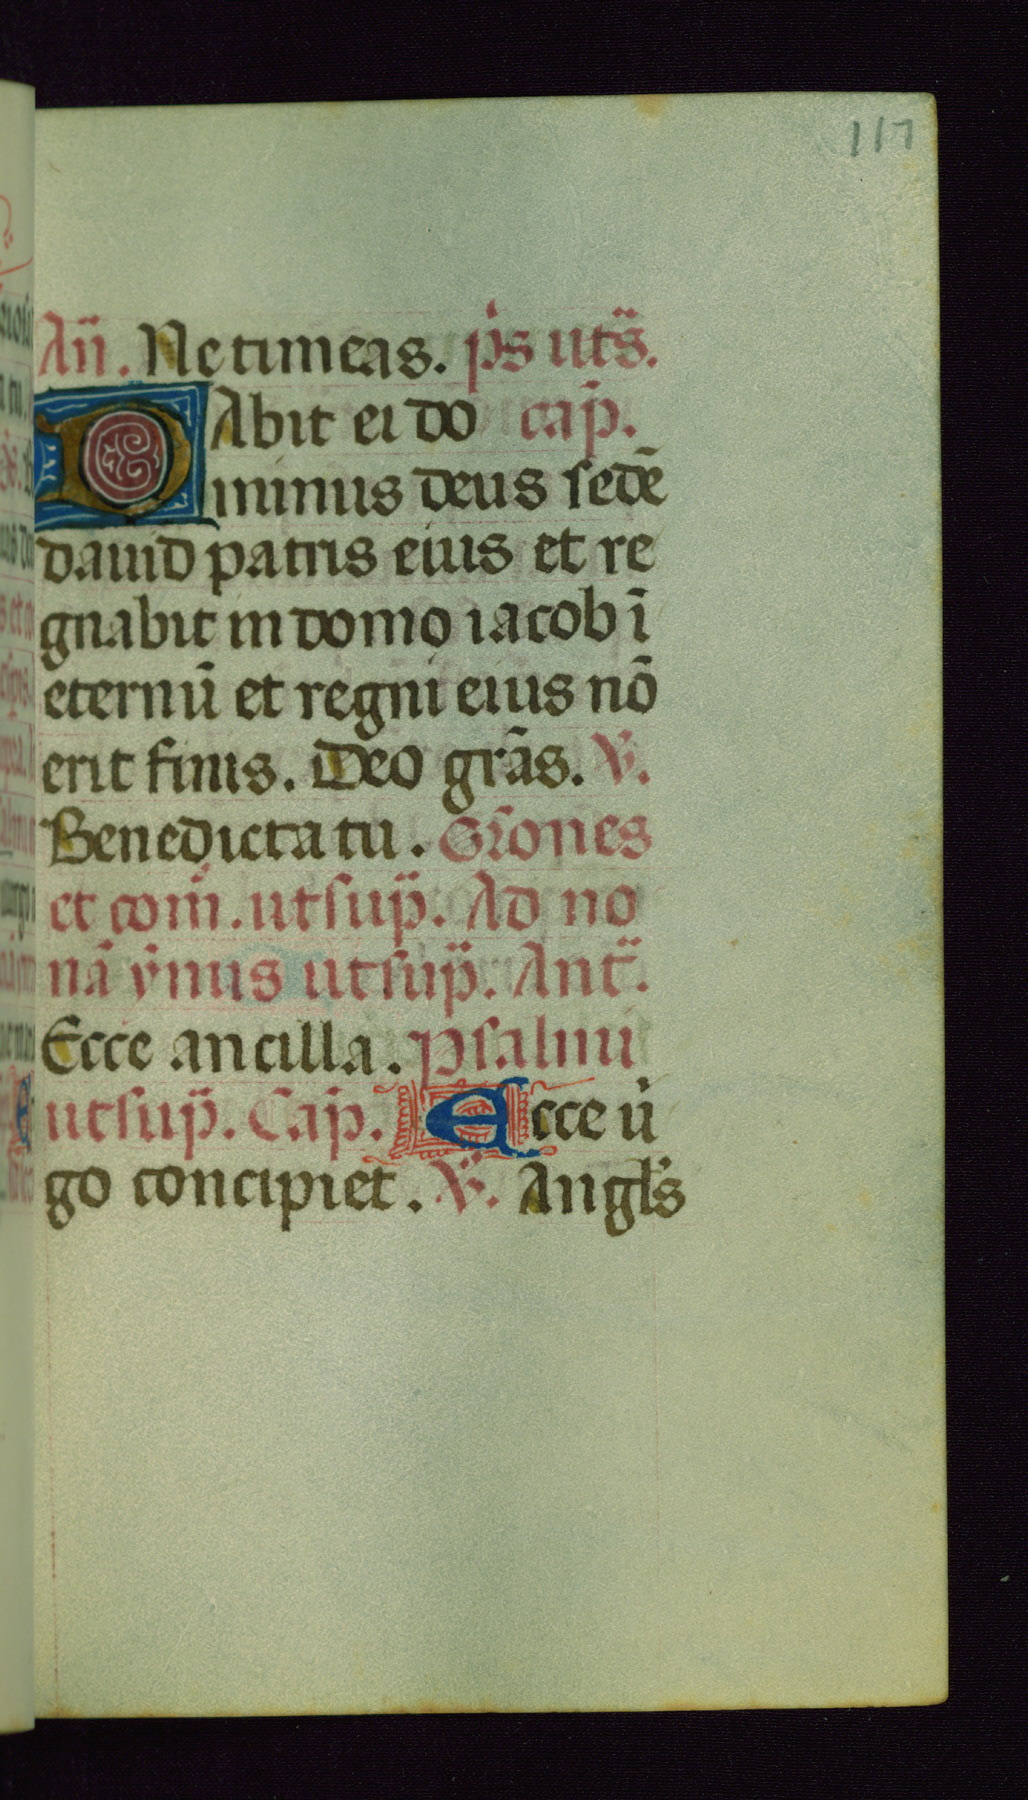 117
Añ. Ne timeas. p̄s uts̄.
DAbit ei do cap̄.
minus deus sedē
dauid patris eius et re
gnabit in domo iacob ī
eternū et regni eius nō
erit finis. Deo grās. V̄.
Benedicta tu. Orōnes
et com̄. ut sup̄. Ad no
nā ȳmus ut sup̄. Ant̄.
Ecce ancilla. psalmi
ut sup̄. Cap̄. Ecce ū
go concipiet. V̄. Angls̄